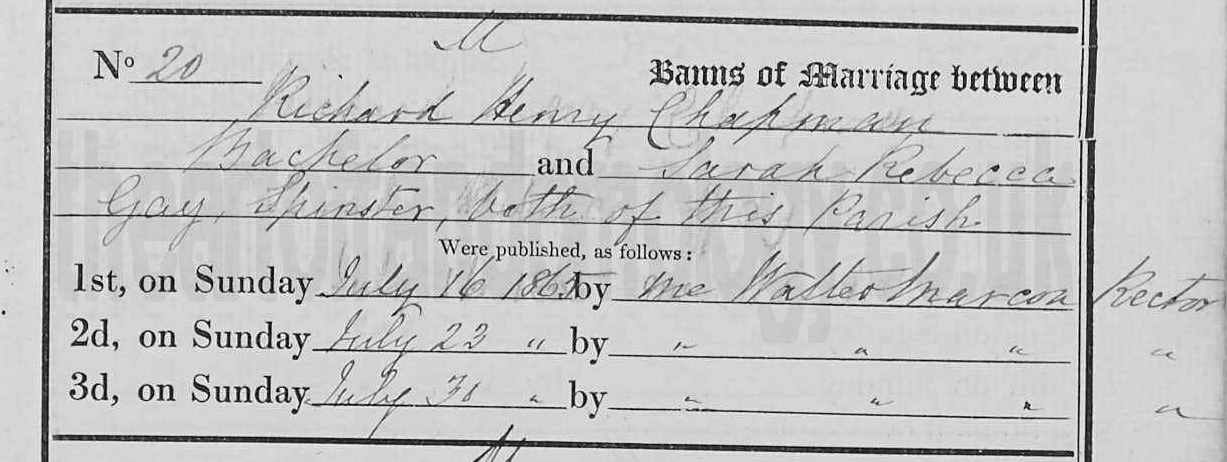 M
No 20 Banns of Marriage between
Richard Henry Chapman
Bachelor and Sarah Rebecca
Gay, Spinster, both of this Parish
Were published, as follows:
1st, on Sunday July 16 1865 by me Walter Marcon Rector
2d, on Sunday July 23 " by " " " "
3d, on Sunday July 30 " by " " " "